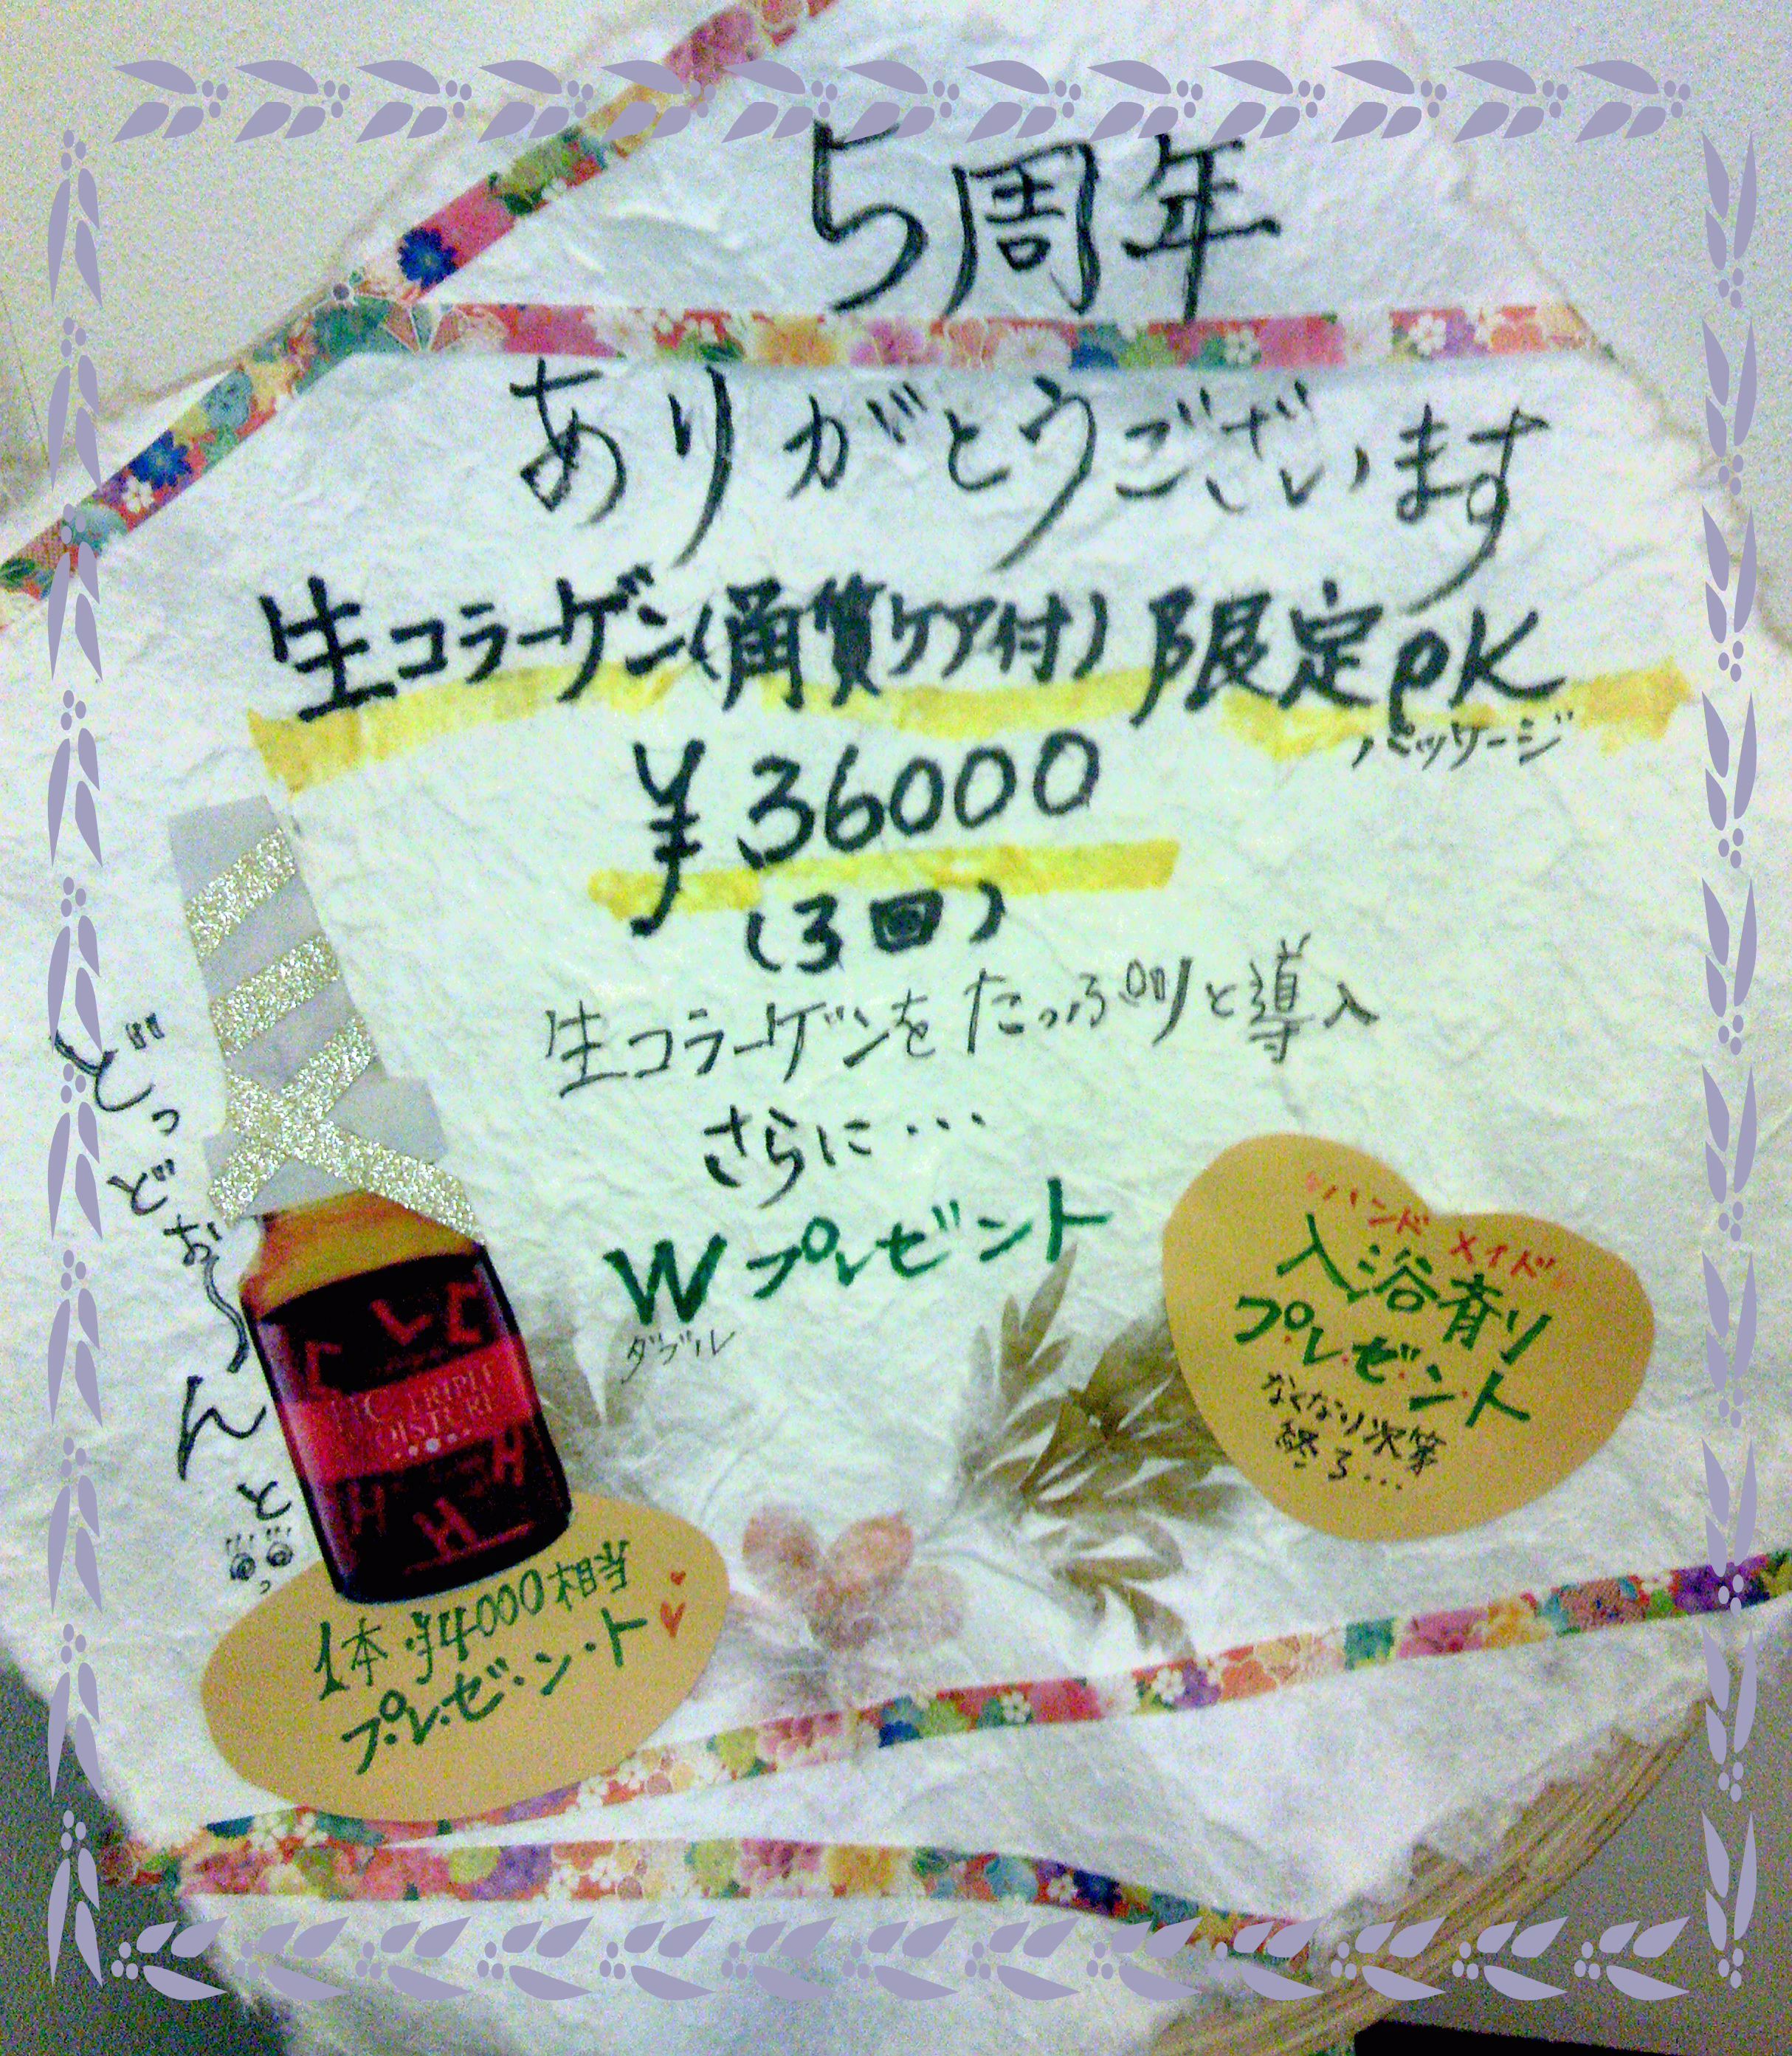 5周年
ありがとうございます
生コラーゲン(角質ケア付)限定PK
パッケージ
¥36000
(3回)
生コラーゲンをたっぷりと導入
さらに…
Wプレゼント
ダブル
ハンドメイド
入浴剤
プレゼント
なくなり次第
終了…
どっどぉ〜んと
TRIPLE
MOISTURE
1本¥4000相当
プレゼント